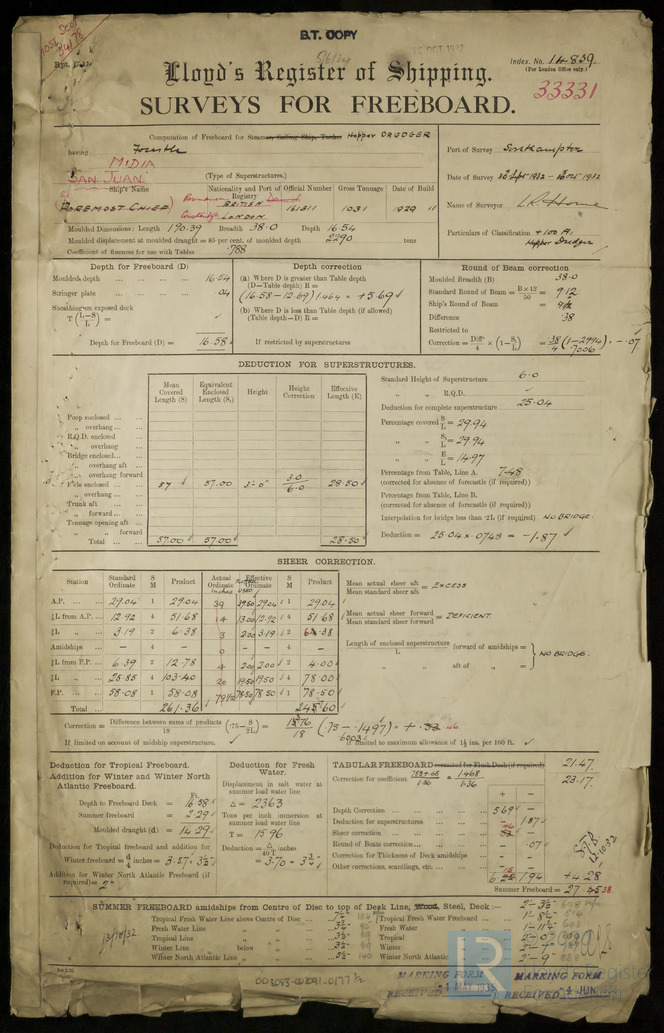 B.T. COPY
Index. No. 14839.
(For London Office only.)
33331
Lloyd's Register of Shipping.
SURVEYS FOR FREEBOARD.
Computation of Freeboard for Steamer, Sailing Ship, Tanker Hopper DRUDGER
having Forecastle
MIDIA
SAN JUAN
(Type of Superstructures.)
Ship's Name Nationality and Port of Registry Official Number Gross Tonnage Date of Build
FOREMOST CHIEF BRITISH LONDON 161311 1031 1929 11
Moulded Dimensions: Length 190.39 Breadth 38.0 Depth 16.54
Moulded displacement at moulded draught = 85 per cent. of moulded depth 2290 tons
Coefficient of fineness for use with Tables .788
Port of Survey Southampton
Date of Survey
Name of Surveyor
Particulars of Classification +100 A1 Hopper Dredger
Depth for Freeboard (D)
Moulded depth 16.54
Stringer plate .04
Sheathing on exposed deck
T (L-S/L) =
Depth for Freeboard (D) = 16.58
Depth correction
(a) Where D is greater than Table depth
(D—Table depth) R =
(16.58-12.69) 1.464 = +5.69
(b) Where D is less than Table depth (if allowed)
(Table depth—D) R =
If restricted by superstructures
Round of Beam correction
Moulded Breadth (B) 38.0
Standard Round of Beam = B×12/50 = 9.12
Ship's Round of Beam = 9½
Difference .38
Restricted to
Correction = Diff/4 × (1-S/L) = .38/4 (1-.2994) = -.07
.7006
DEDUCTION FOR SUPERSTRUCTURES.
Mean Covered Length (S) Equivalent Enclosed Length (S₁) Height Height Correction Effective Length (E)
Poop enclosed
„ overhang
R.Q.D. enclosed
„ overhang
Bridge enclosed
„ overhang aft
„ overhang forward
F'cle enclosed 57 57.00 3'-0" 3.0/6.0 28.50
„ overhang
Trunk aft
„ forward
Tonnage opening aft
„ „ forward
Total 57.00 57.00 28.50
Standard Height of Superstructure 6.0
„ „ R.Q.D.
Deduction for complete superstructure 25.04
Percentage covered S/L = 29.94
„ „ S₁/L = 29.94
„ „ E/L = 14.97
Percentage from Table, Line A. 7.48
(corrected for absence of forecastle (if required))
Percentage from Table, Line B.
(corrected for absence of forecastle (if required))
Interpolation for bridge less than ·2L (if required) NO BRIDGE.
Deduction = 25.04 × .0748 = -1.87
SHEER CORRECTION.
Station Standard Ordinate S M Product Actual Ordinate Effective Ordinate S M Product
A.P. 29.04 1 29.04 39 39.50 29.04 1 29.04
⅙L from A.P. 12.92 4 51.68 14 13.00 12.92 4 51.68
⅓L „ 3.19 2 6.38 3 2.00 3.19 2 6.38
Amidships — 4 — 0 — — 4 —
⅓L from F.P. 6.39 2 12.78 4 2.00 2.00 2 4.00
⅙L „ 25.85 4 103.40 20 19.50 19.50 4 78.00
F.P. 58.08 1 58.08 79½ 78.50 78.50 1 78.50
Total 261.36 60
Mean actual sheer aft / Mean standard sheer aft = EXCESS
Mean actual sheer forward / Mean standard sheer forward = DEFICIENT.
Length of enclosed superstructure / L forward of amidships =
„ „ aft of „ =
NO BRIDGE.
Correction = Difference between sums of products / 18 (·75-S/2L) = /18 (.75-.1497) = +
.6003
If limited on account of midship superstructure.
If limited to maximum allowance of 1½ ins. per 100 ft.
Deduction for Tropical Freeboard.
Addition for Winter and Winter North Atlantic Freeboard.
Ft.
Depth to Freeboard Deck = 16.58
Summer freeboard = 2.29
Moulded draught (d) = 14.29
Deduction for Tropical freeboard and addition for
Winter freeboard = d/4 inches = 3.57 = 3½"
Addition for Winter North Atlantic Freeboard (if required) = 2"
Deduction for Fresh Water.
Displacement in salt water at summer load water line
Δ = 2363
Tons per inch immersion at summer load water line
T = 15.96
Deduction = Δ/40T inches
= 3.70 = 3¾"
TABULAR FREEBOARD corrected for Flush Deck (if required) 21.47
Correction for coefficient .788+.68/1.36 = 1.468/1.36 23.17
+ −
Depth Correction 5.69 —
Deduction for superstructures — 1.87
Sheer correction —
Round of Beam correction — .07
Correction for Thickness of Deck amidships — —
Other corrections, scantlings, etc. — —
1.94 +4.28
Summer Freeboard = 27
12.10.32
SUMMER FREEBOARD amidships from Centre of Disc to top of Deck Line, Wood, Steel, Deck :— 2'-3½"
Tropical Fresh Water Line above Centre of Disc 7¼" Tropical Fresh Water Freeboard 1'-8¼"
Fresh Water Line „ „ 3¾" Fresh Water „ 1'-11¾"
Tropical Line „ „ 3½" Tropical „ 2'-0"
Winter Line below „ 3½" Winter „ 2'-7"
Winter North Atlantic Line „ „ 5½" Winter North Atlantic „ 2'-9"
13/10/32
003083-003091-0177½
MARKING FORM
RECEIVED 1 MAY 1935
MARKING FORM
RECEIVED 4 JUN
LR